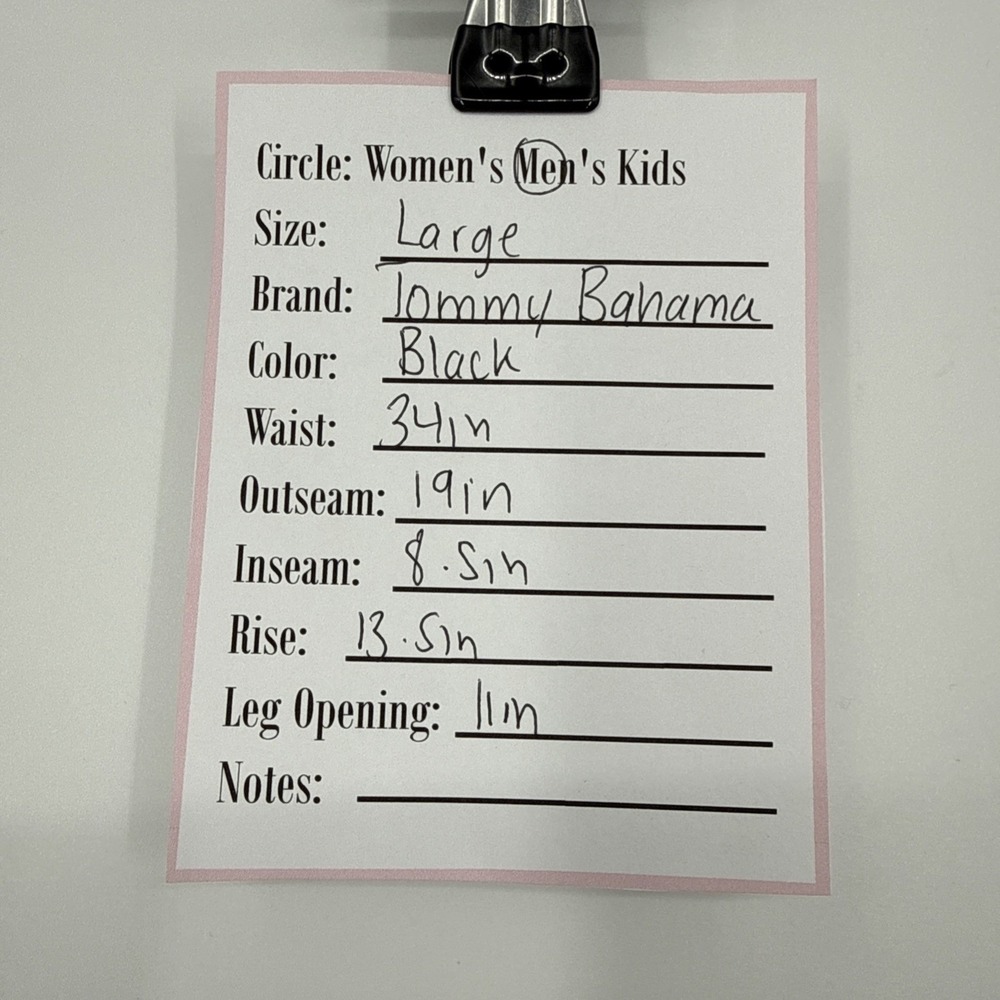 Circle: Women's Men's Kids
Size: Large
Brand: Tommy Bahama
Color: Black
Waist: 34in
Outseam: 19in
Inseam: 8.5in
Rise: 13.5in
Leg Opening: 11in
Notes: